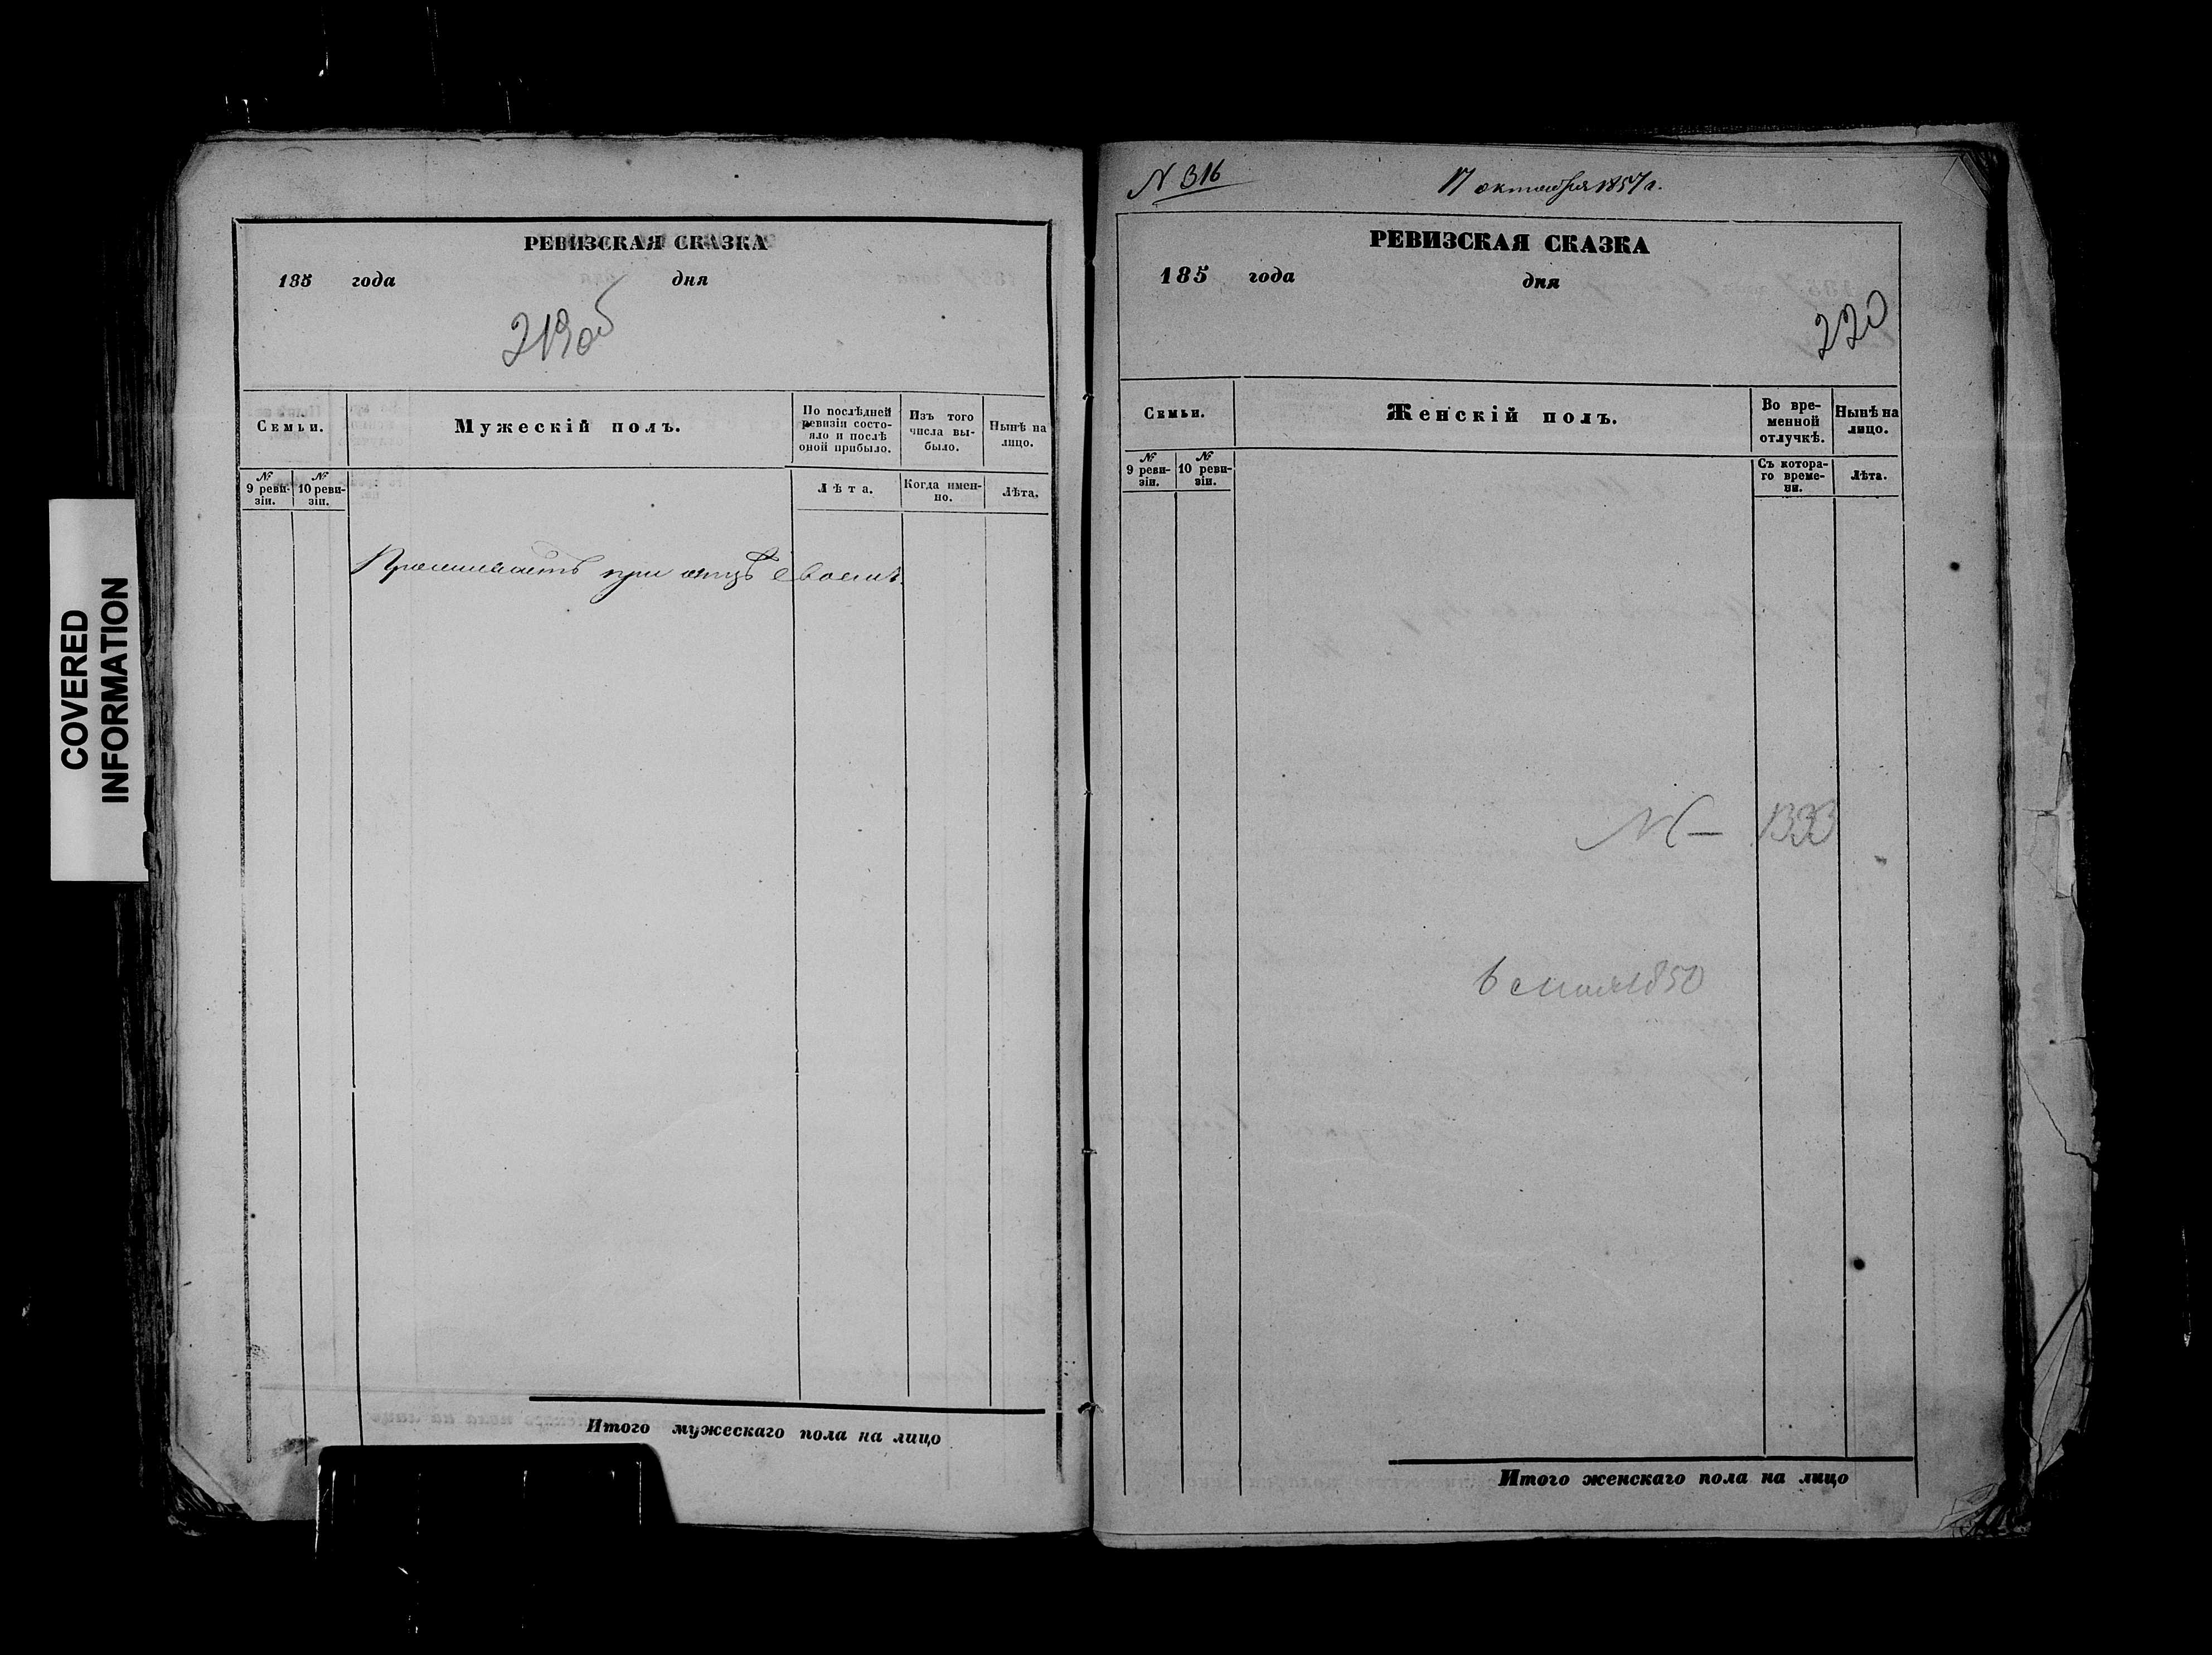 COVERED
INFORMATION
РЕВИЗСКАЯ СКАЗКА
185 года дня
219 об
Семьи.
Мужескій полъ.
По послѣдней
ревизіи состо-
яло и послѣ
оной прибыло.
Изъ того
числа вы-
было.
Нынѣ на
лицо.
№
9 реви-
зіи.
№
10 реви-
зіи.
Лѣта.
Когда имен-
но.
Лѣта.
Проживаетъ при отцѣ своемъ.
Итого мужескаго пола на лицо
N 316
17 октября 1857 г.
РЕВИЗСКАЯ СКАЗКА
185 года дня
220
Семьи.
Женскій полъ.
Во вре-
менной
отлучкѣ.
Нынѣ на
лицо.
№
9 реви-
зіи.
№
10 реви-
зіи.
Съ котора-
го време-
ни.
Лѣта.
N — 1333
1850
Итого женскаго пола на лицо